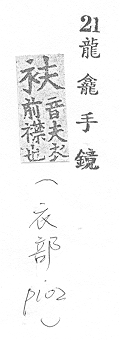 21 龍龕手鏡
衭
音夫衣
前襟也
(衣部 p102)